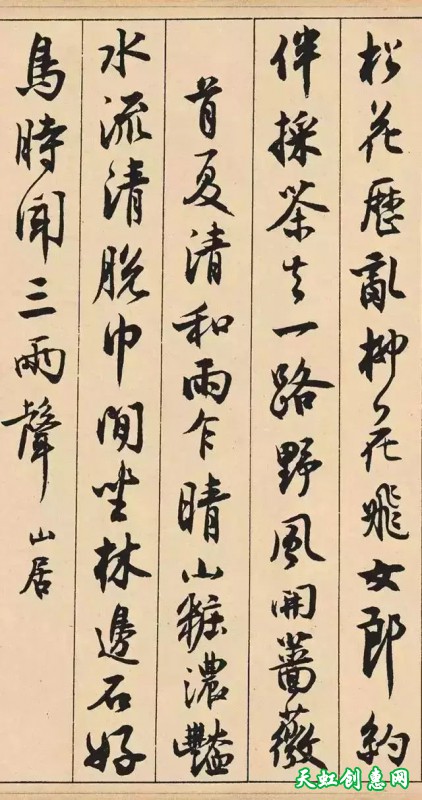 松花歷亂柳花飛女郎約
伴採茶去一路野風開薔薇
首夏清和雨乍晴山粧濃豔
水流清脫巾閒坐林邊石好
鳥時聞三兩聲 山居
天虹创惠网